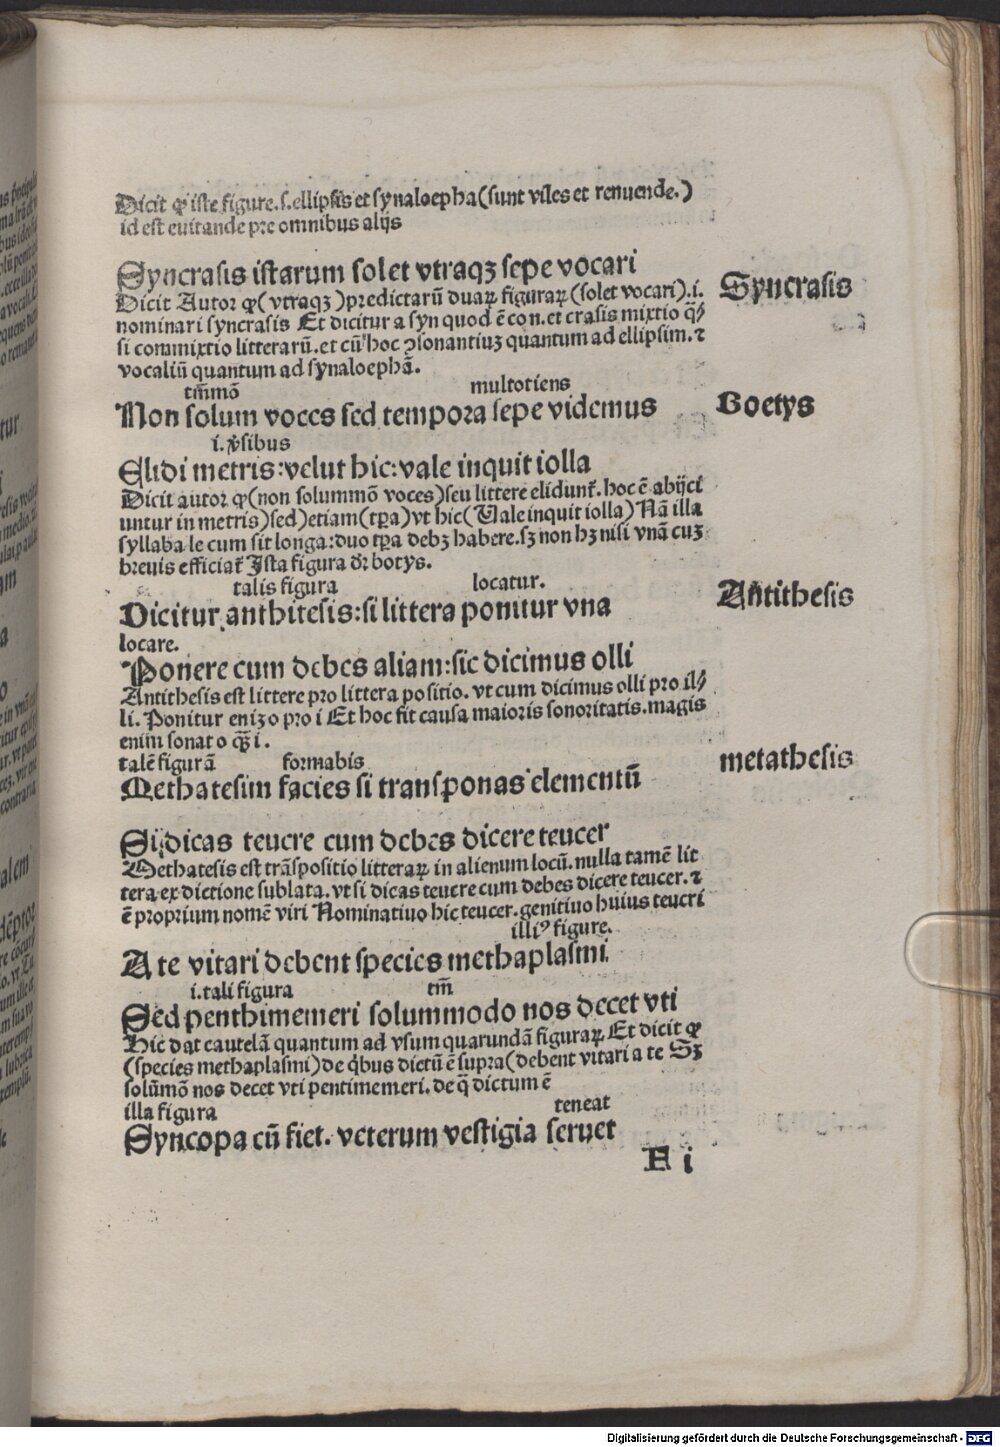 Dicit ꝙ iste figure.s.ellipsis et synaloepha(sunt viles et renuende.)
id est euitande pre omnibus alijs
Syncrasis istarum solet vtraqꝫ sepe vocari
Syncrasis
Dicit Autor ꝙ(vtraqꝫ)predictarū duaꝝ figuraꝝ(solet vocari).i.
nominari syncrasis Et dicitur a syn quod ē con.et crasis mixtio q̄⸗
si commixtio litterarū.et cū hoc ꝯsonantiuꝫ quantum ad ellipsim.⁊
vocaliū quantum ad synaloephā.
tm̄mō multotiens
Non solum voces sed tempora sepe videmus
Boetys
i.v̓sibus
Elidi metris:velut hic:vale inquit iolla
Dicit autor ꝙ(non solummō voces)seu littere elidunt᷑.hoc ē abijci
untur in metris)sed)etiam(tꝑa)vt hic(Uale inquit iolla)Nā illa
syllaba le cum sit longa:duo tꝑa debꝫ habere.sꝫ non hꝫ nisi vnā cuꝫ
breuis efficiat᷑ Ista figura dr̄ botys.
talis figura locatur.
Dicitur anthitesis:si littera ponitur vna
Antithesis
locare.
Ponere cum debes aliam:sic dicimus olli
Antithesis est littere pro littera positio.vt cum dicimus olli pro il⸗
li.Ponitur eniꝫ o pro i Et hoc fit causa maioris sonoritatis.magis
enim sonat o qꝫ̄ i.
talē figurā formabis
metathesis
Methatesim facies si transponas elementū
Si dicas teucre cum debes dicere teucer
Methatesis est trāspositio litteraꝝ in alienum locū.nulla tamē lit
tera ex dictione sublata.vt si dicas teucre cum debes dicere teucer.⁊
ē proprium nomē viri Nominatiuo hic teucer.genitiuo huius teucri
illiꝰ figure.
A te vitari debent species methaplasmi
i.tali figura tm̄
Sed penthimemeri solummodo nos decet vti
Hic dat cautelā quantum ad vsum quarundā figuraꝝ.Et dicit ꝙ
(species methaplasmi)de q̇bus dictū ē supra(debent vitari a te Sꝫ
solūmō nos decet vti pentimemeri.de q̄ dictum ē
illa figura teneat
Syncopa cū fiet.veterum vestigia seruet
H i
Digitalisierung gefördert durch die Deutsche Forschungsgemeinschaft - DFG